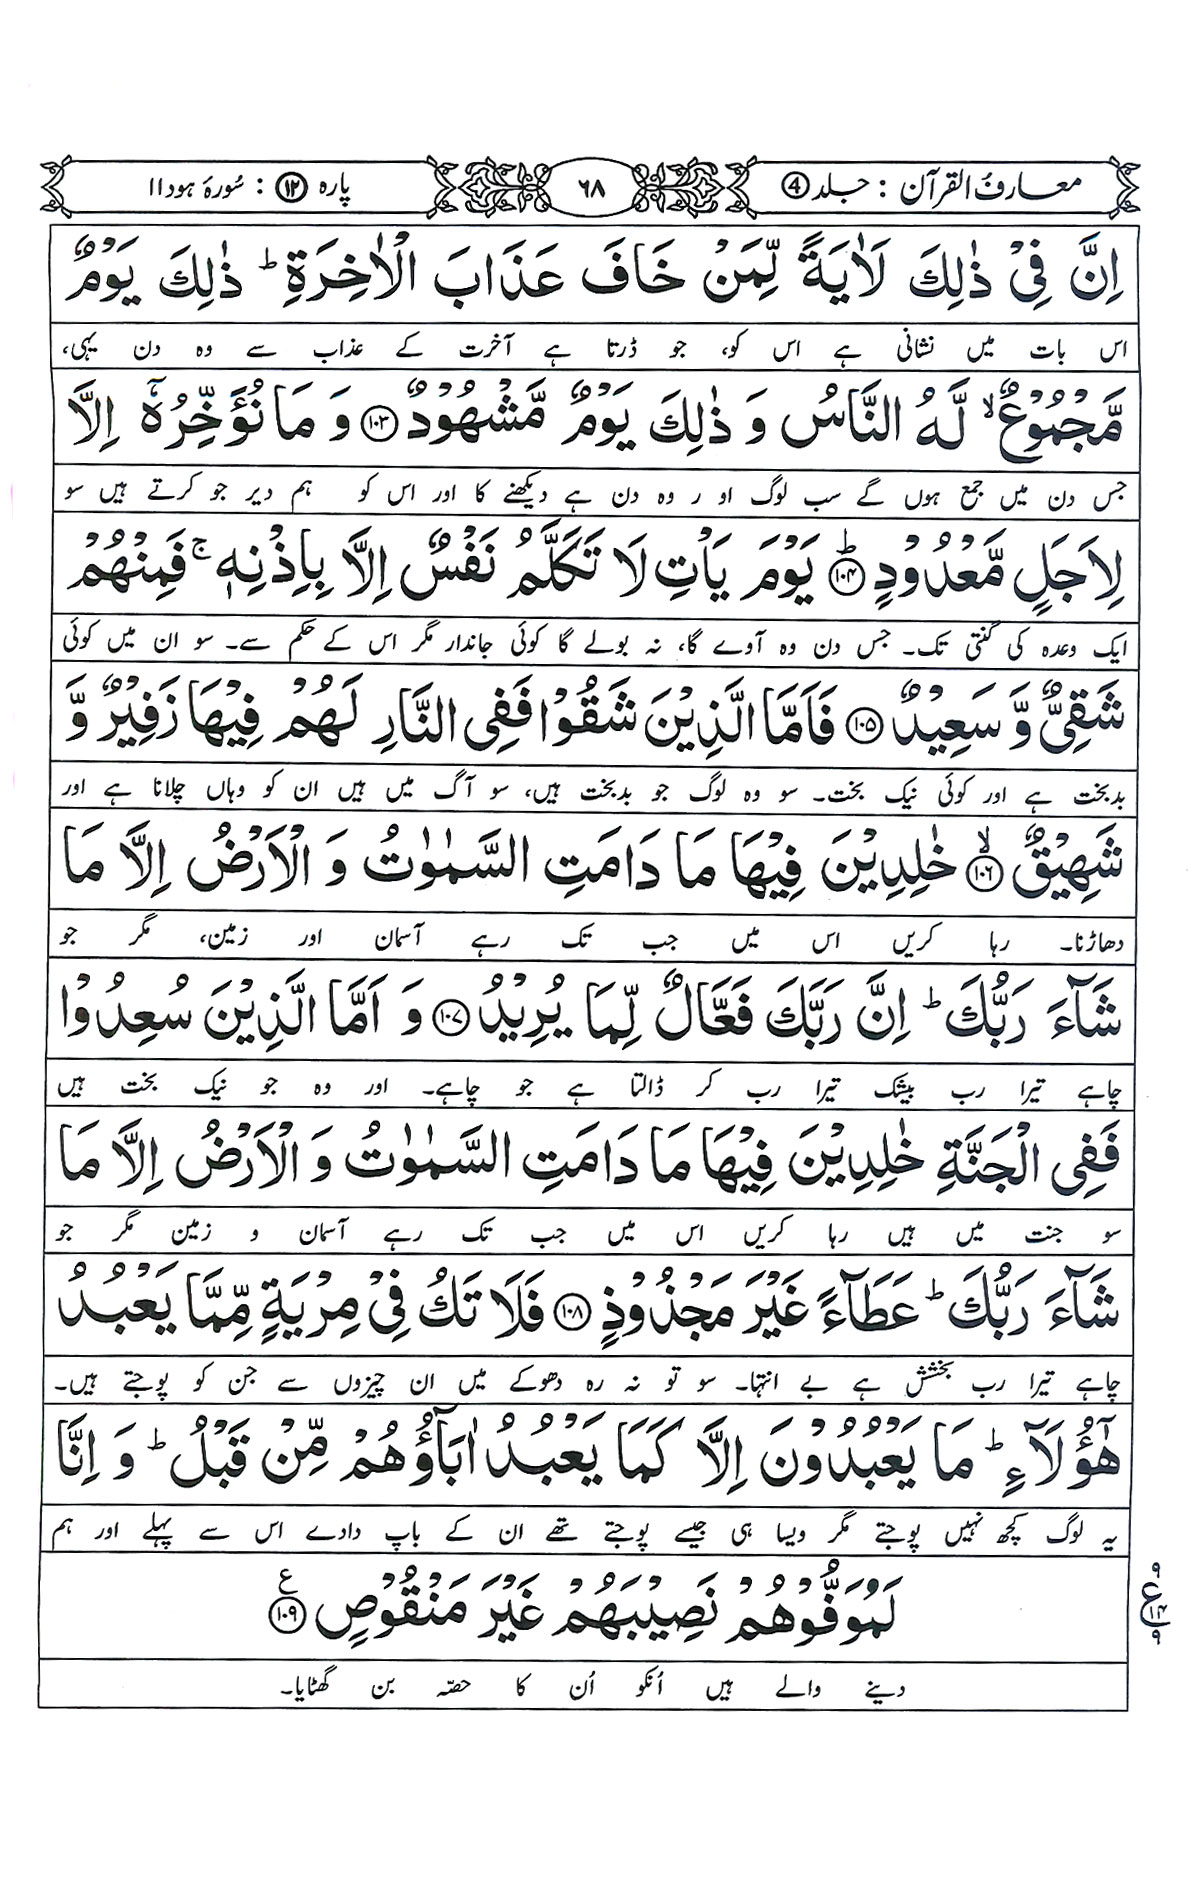 معارف القرآن : جلد ④ ۶۸ پارہ ⑫ : سُورۂ ہود ۱۱
اِنَّ فِیْ ذٰلِكَ لَاٰیَةً لِّمَنْ خَافَ عَذَابَ الْاٰخِرَةِ ؕ ذٰلِكَ یَوْمٌ
اس بات میں نشانی ہے اس کو، جو ڈرتا ہے آخرت کے عذاب سے وہ دن یہی،
مَّجْمُوْعٌ ۙ لَّهُ النَّاسُ وَ ذٰلِكَ یَوْمٌ مَّشْهُوْدٌ ﴿۱۰۳﴾ وَ مَا نُؤَخِّرُهٗۤ اِلَّا
جس دن میں جمع ہوں گے سب لوگ او ر وہ دن ہے دیکھنے کا اور اس کو ہم دیر جو کرتے ہیں سو
لِاَجَلٍ مَّعْدُوْدٍ ﴿۱۰۴﴾ؕ یَوْمَ یَاْتِ لَا تَكَلَّمُ نَفْسٌ اِلَّا بِاِذْنِهٖ ۚ فَمِنْهُمْ
ایک وعدہ کی گنتی تک۔ جس دن وہ آوے گا، نہ بولے گا کوئی جاندار مگر اس کے حکم سے۔ سو ان میں کوئی
شَقِیٌّ وَّ سَعِیْدٌ ﴿۱۰۵﴾ فَاَمَّا الَّذِیْنَ شَقُوْا فَفِی النَّارِ لَهُمْ فِیْهَا زَفِیْرٌ وَّ
بدبخت ہے اور کوئی نیک بخت۔ سو وہ لوگ جو بدبخت ہیں، سو آگ میں ہیں ان کو وہاں چلانا ہے اور
شَهِیْقٌ ﴿۱۰۶﴾ۙ خٰلِدِیْنَ فِیْهَا مَا دَامَتِ السَّمٰوٰتُ وَ الْاَرْضُ اِلَّا مَا
دھاڑنا۔ رہا کریں اس میں جب تک رہے آسمان اور زمین، مگر جو
شَآءَ رَبُّكَ ؕ اِنَّ رَبَّكَ فَعَّالٌ لِّمَا یُرِیْدُ ﴿۱۰۷﴾ وَ اَمَّا الَّذِیْنَ سُعِدُوْا
چاہے تیرا رب بیشک تیرا رب کر ڈالتا ہے جو چاہے۔ اور وہ جو نیک بخت ہیں
فَفِی الْجَنَّةِ خٰلِدِیْنَ فِیْهَا مَا دَامَتِ السَّمٰوٰتُ وَ الْاَرْضُ اِلَّا مَا
سو جنت میں ہیں رہا کریں اس میں جب تک رہے آسمان و زمین مگر جو
شَآءَ رَبُّكَ ؕ عَطَآءً غَیْرَ مَجْذُوْذٍ ﴿۱۰۸﴾ فَلَا تَكُ فِیْ مِرْیَةٍ مِّمَّا یَعْبُدُ
چاہے تیرا رب بخشش ہے بے انتہا۔ سو تو نہ رہ دھوکے میں ان چیزوں سے جن کو پوجتے ہیں۔
هٰۤؤُلَآءِ ؕ مَا یَعْبُدُوْنَ اِلَّا كَمَا یَعْبُدُ اٰبَآؤُهُمْ مِّنْ قَبْلُ ؕ وَ اِنَّا
یہ لوگ کچھ نہیں پوجتے مگر ویسا ہی جیسے پوجتے تھے ان کے باپ دادے اس سے پہلے اور ہم
لَمُوَفُّوْهُمْ نَصِیْبَهُمْ غَیْرَ مَنْقُوْصٍ ﴿۱۰۹﴾ع
دینے والے ہیں اُنکو اُن کا حصّہ بن گھٹایا۔
۹
ع ۱۴
۹